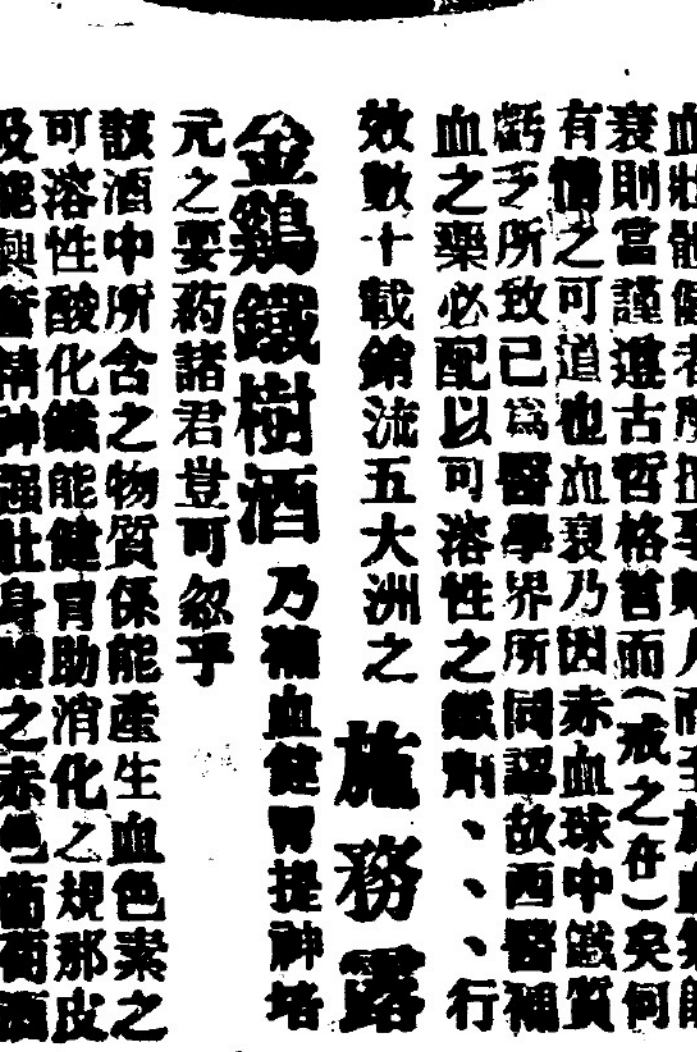 血壯體健者
衰則當謹遵古哲格言而(戒之在)矣何
有情之可道也血衰乃因赤血球中鐵質
虧乏所致已爲醫學界所同認故西醫補
血之藥必配以可溶性之鐵劑、、、行
效數十載銷流五大洲之施務露
金鷄鐵樹酒乃補血健胃提神培
元之要葯諸君豈可忽乎
該酒中所含之物質係能產生血色素之
可溶性酸化鐵能健胃助消化之規那皮
及能興奮精神强壯身體之赤色葡萄酒